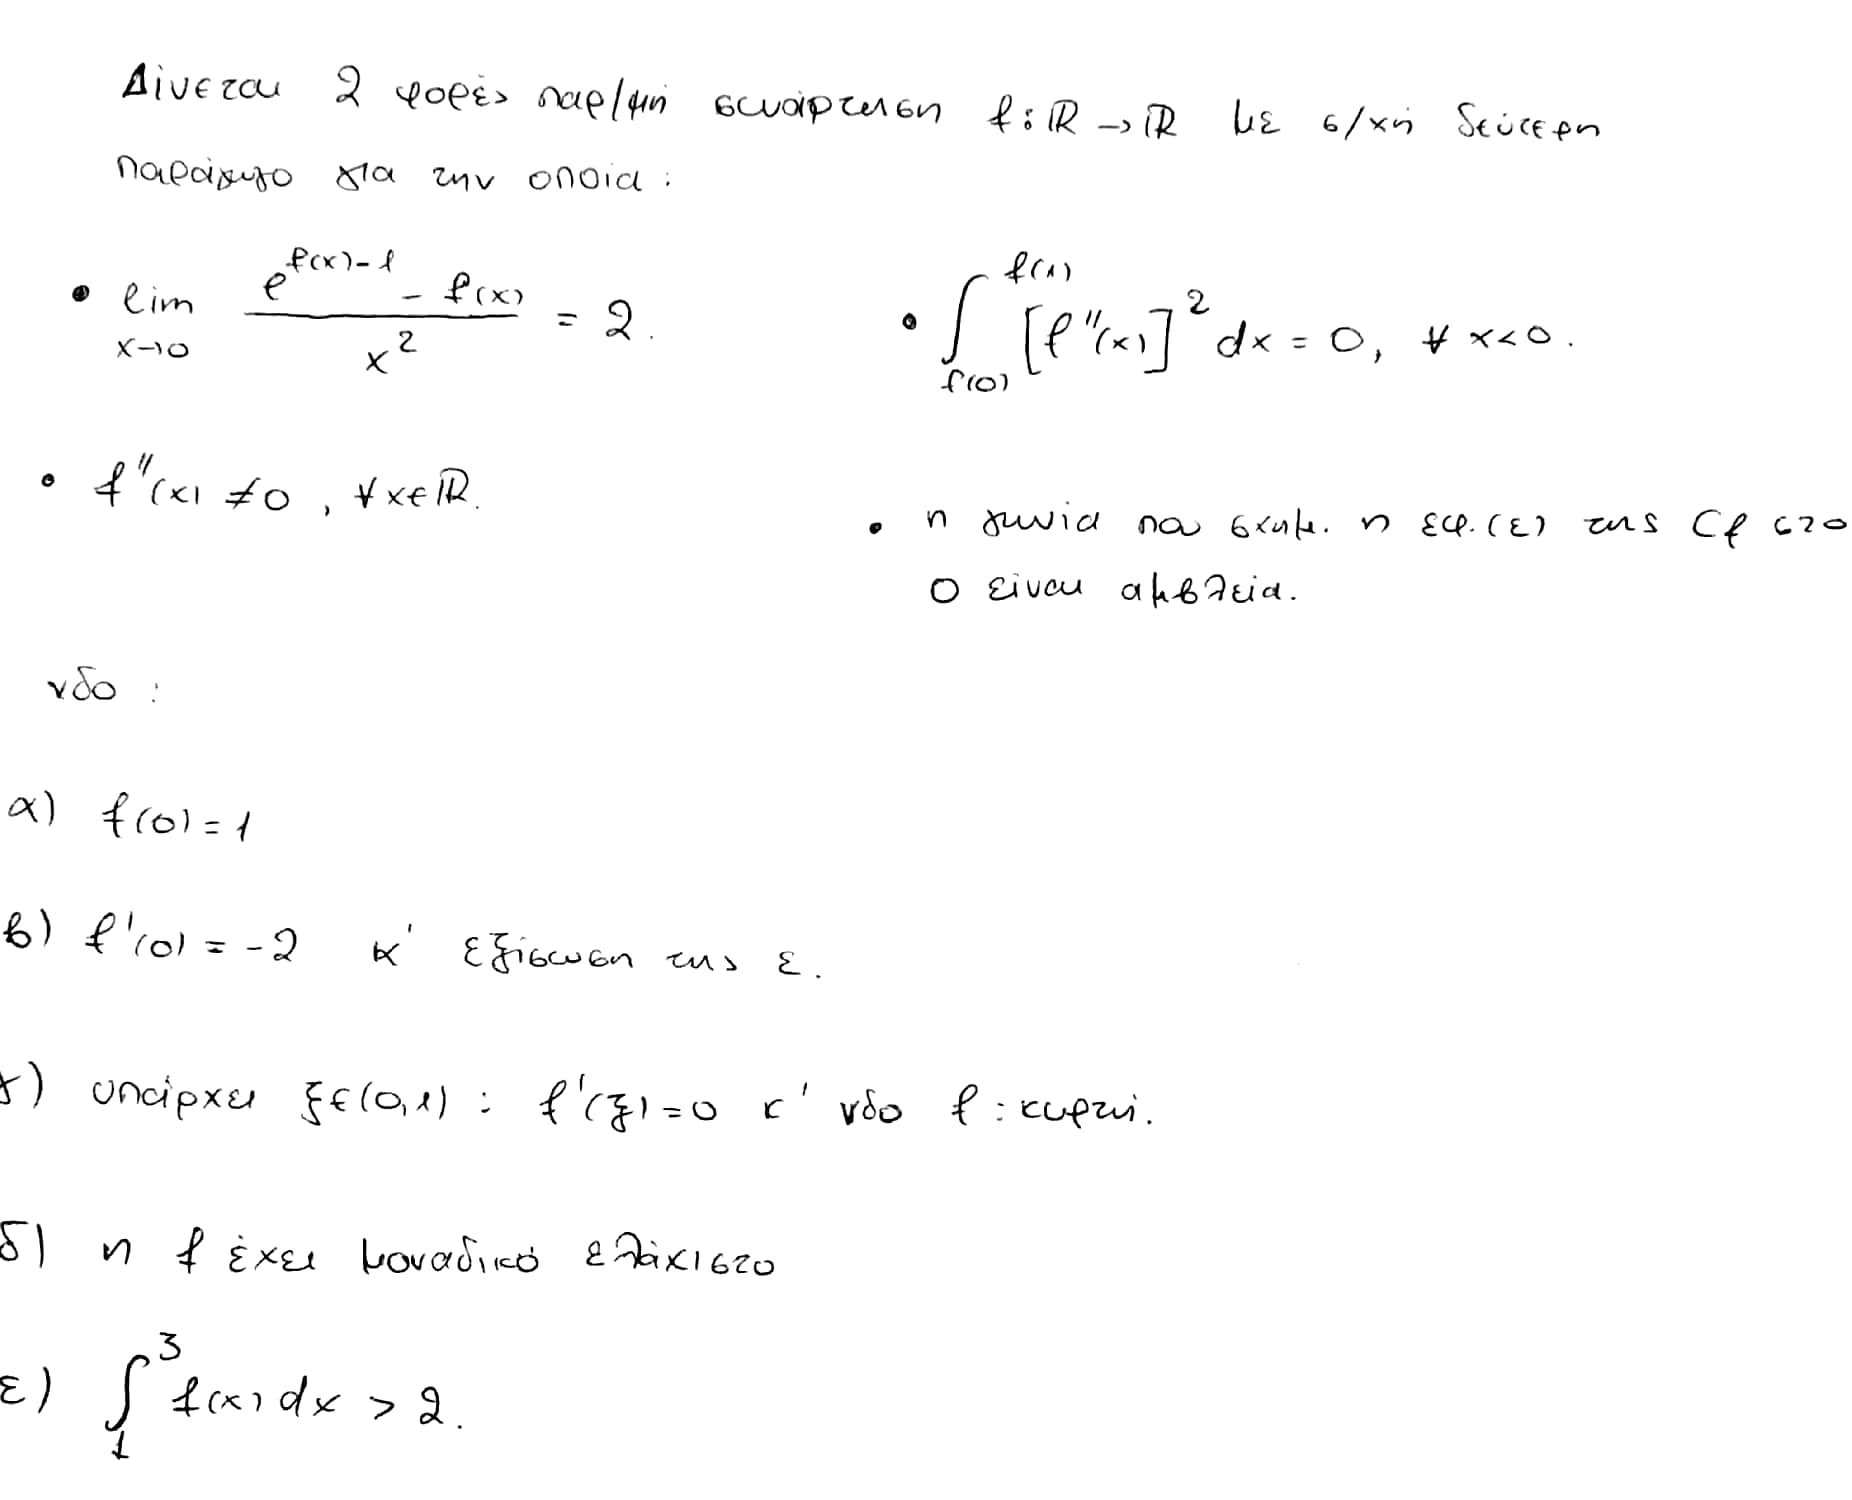 Δίνεται 2 φορές παρ/μη συνάρτηση f: ℝ → ℝ με σ/χή δεύτερη
παράγωγο για την οποία:
• lim_{x→0} (e^{f(x)-1} - f(x)) / x^2 = 2.
• ∫_{f(0)}^{f(1)} [f''(x)]^2 dx = 0, ∀ x<0.
• f''(x) ≠ 0, ∀x∈ℝ.
• η γωνία που σχημ. η εφ. (ε) της Cf στο
0 είναι αμβλεία.
νδο:
α) f(0) = 1
β) f'(0) = -2 κ' εξίσωση της ε.
γ) υπάρχει ξ∈(0,1): f'(ξ)=0 κ' νδο f: κυρτή.
δ) η f έχει μοναδικό ελάχιστο
ε) ∫_1^3 f(x) dx > 2.